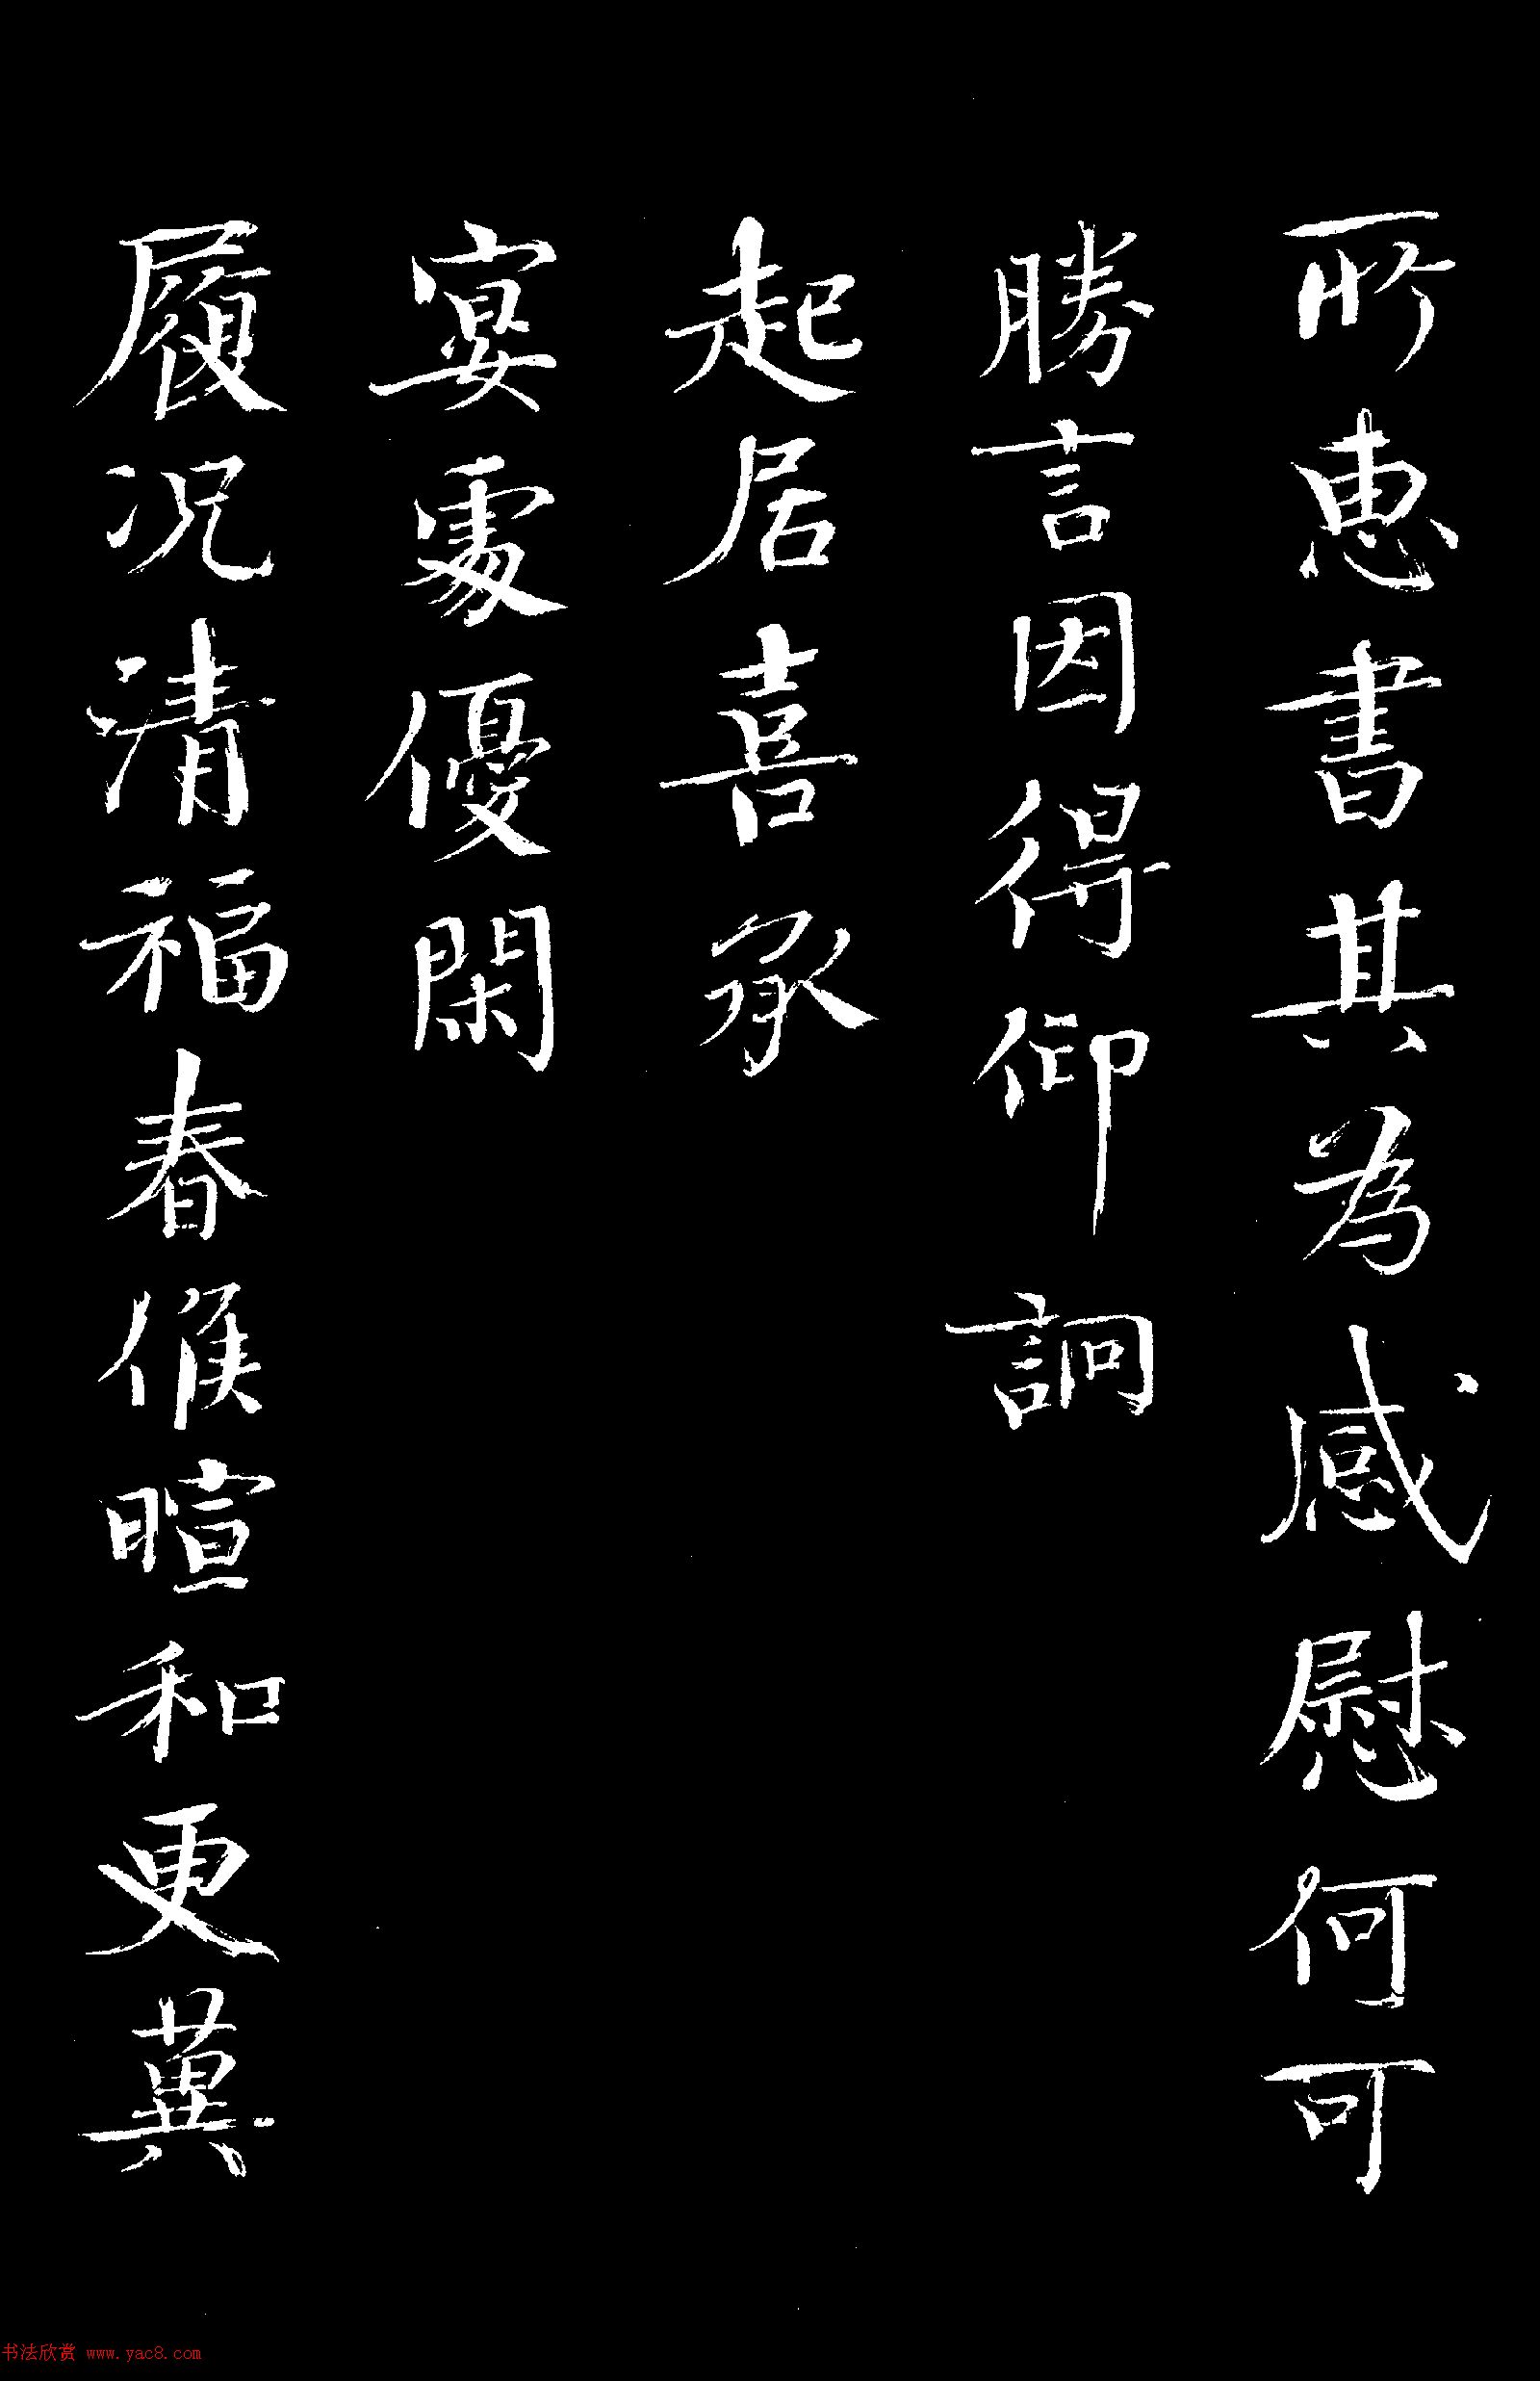 所惠書其為感慰何可
勝言因得仰詗
起居喜承
宴處優閑
履況清福春候暄和更冀
书法欣赏 www.yac8.com